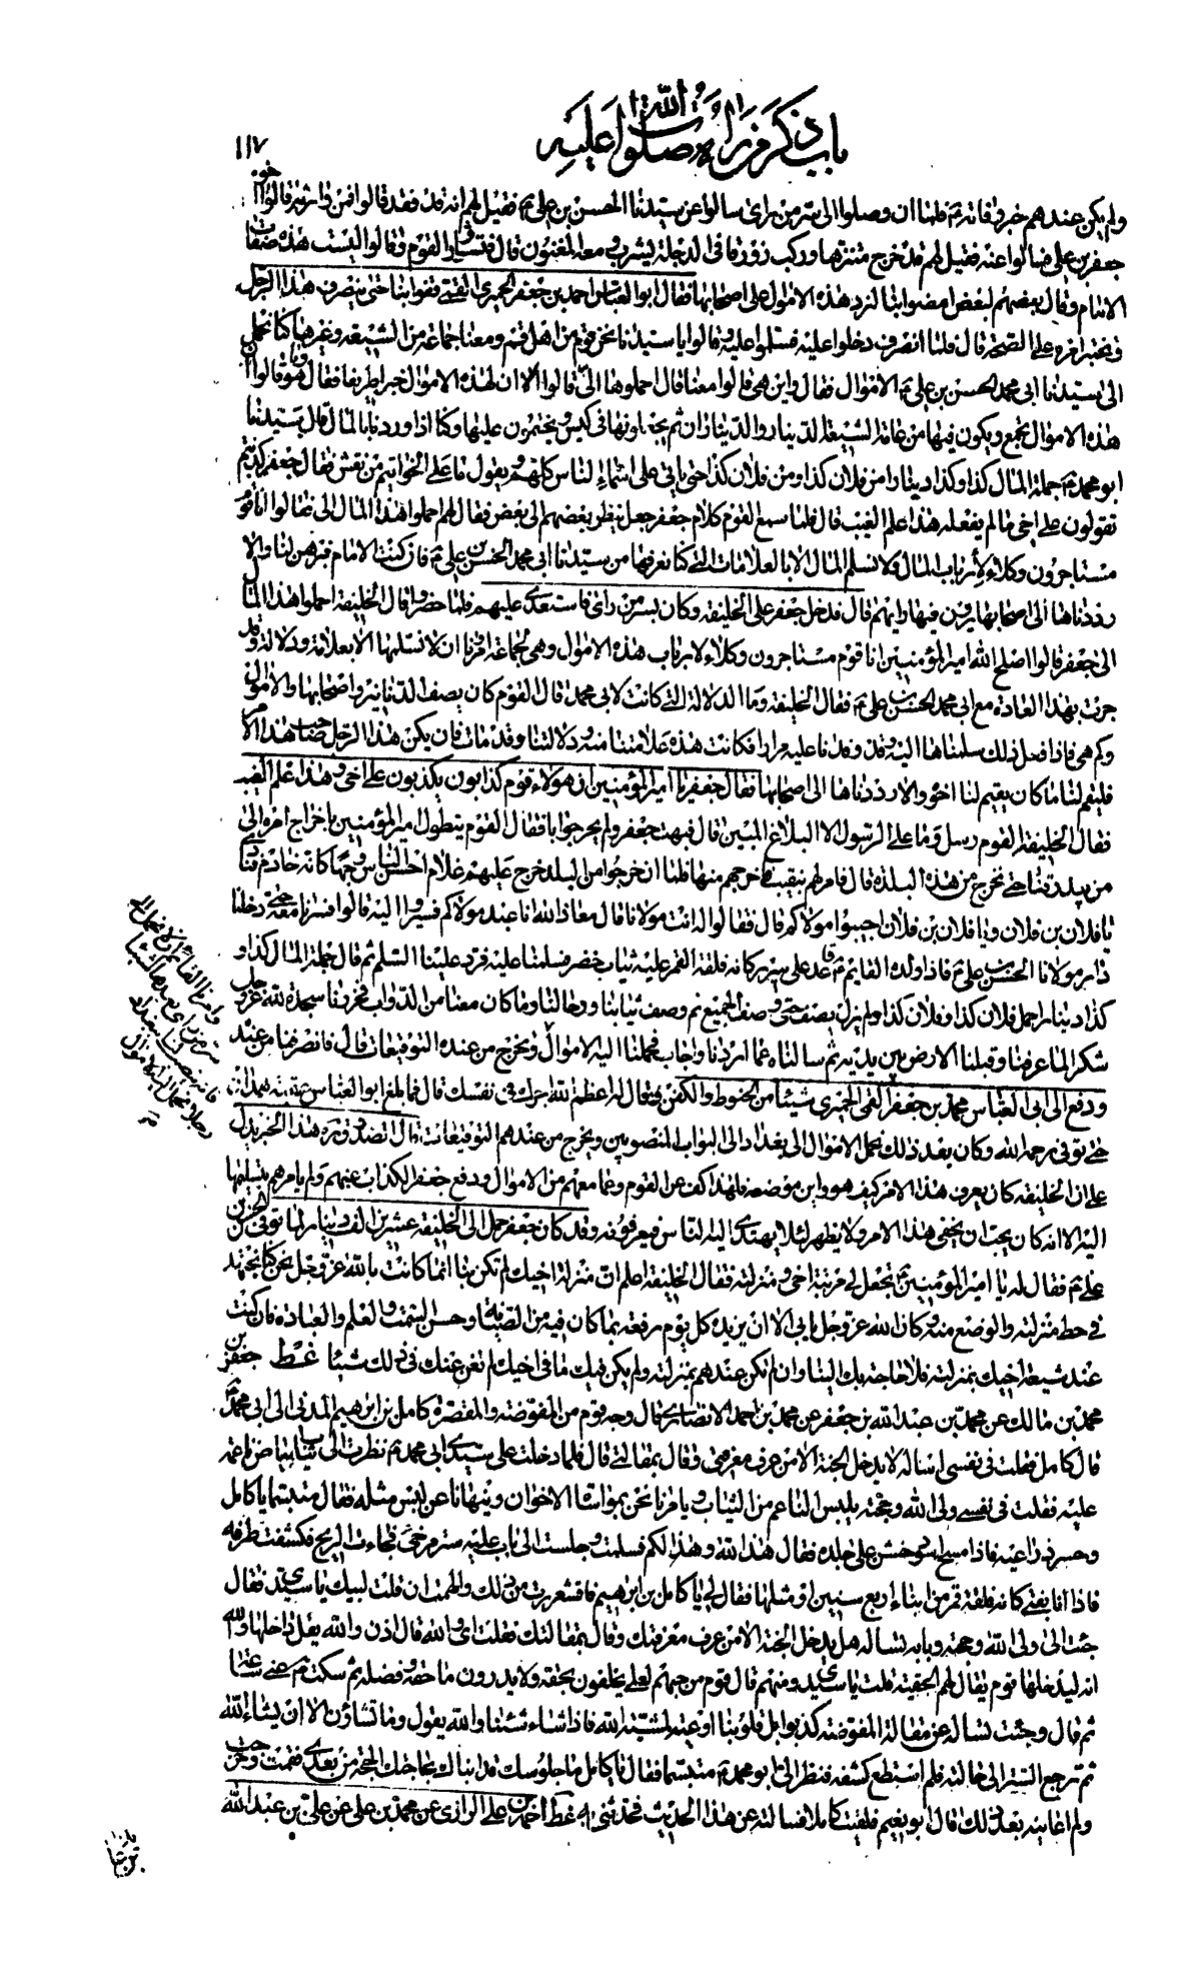 باب ذكر من رآه صلوات الله عليه
١١٧
ولم يكن عندهم خبر وفاته ع فلما ان وصلوا الى سر من راى سالوا عن سيدنا الحسن بن علي ع فقيل لهم انه قد فقد قالوا فمن وارثه قالوا اخوه
جعفر بن علي فسالوا عنه فقيل لهم قد خرج متنزها وركب زورقا في الدجلة يشرب ومعه المغنون قال فتشاور القوم وقالوا ليست هذه صفات
الامام وقال بعضهم لبعض امضوا بنا لنرد هذه الاموال على اصحابها فقال ابو العباس احمد بن جعفر الحميري القمي قفوا بنا حتى ينصرف هذا الرجل
ونختبر امره على الصحة قال فلما انصرف دخلوا عليه فسلموا عليه وقالوا يا سيدنا نحن قوم من اهل قم ومعنا جماعة من الشيعة وغيرها كنا نحمل
الى سيدنا ابي محمد الحسن بن علي ع الاموال فقال واين هي قالوا معنا قال احملوها الي قالوا الا ان لهذه الاموال خبرا طريفا فقال وما هو قالوا ان
هذه الاموال تجمع ويكون فيها من عامة الشيعة الدينار والديناران ثم يجعلونها في كيس ويختمون عليها وكنا اذا وردنا بالمال قال سيدنا
ابو محمد ع جملة المال كذا وكذا دينارا من فلان كذا ومن فلان كذا حتى ياتي على اسماء الناس كلهم ويقول ما على الخواتيم من نقش فقال جعفر كذبتم
تقولون على اخي ما لم يفعله هذا علم الغيب قال فلما سمع القوم كلام جعفر جعل ينظر بعضهم الى بعض فقال لهم احملوا هذا المال الي فقالوا انا قوم
مستاجرون وكلاء لأرباب المال ولا نسلم المال الا بالعلامات التي كنا نعرفها من سيدنا ابي محمد الحسن بن علي ع فان كنت الامام فبرهن لنا والا
رددناها الى اصحابها يرون فيها رايهم قال فدخل جعفر على الخليفة وكان بسر من راى فاستعدى عليهم فلما حضروا قال الخليفة احملوا هذا المال
الى جعفر قالوا اصلح الله امير المؤمنين انا قوم مستاجرون وكلاء لارباب هذه الاموال وهي لجماعة امرونا ان لا نسلمها الا بعلامة ودلالة وقد
جرت بهذا العادة مع ابي محمد الحسن بن علي ع فقال الخليفة وما الدلالة التي كانت لابي محمد قال القوم كان يصف الدنانير واصحابها والاموال
وكم هي فاذا فعل ذلك سلمناها اليه وقد وفدنا عليه مرارا فكانت هذه علامتنا منه ودلالتنا وقد مات فان يكن هذا الرجل صاحب هذا الامر
فليقم لنا ما كان يقيم لنا اخوه والا رددناها الى اصحابها فقال جعفر يا امير المؤمنين ان هؤلاء قوم كذابون يكذبون على اخي وهذا علم الغيب
فقال الخليفة القوم رسل وما على الرسول الا البلاغ المبين قال فبهت جعفر ولم يحر جوابا فقال القوم يتطول امير المؤمنين باخراج امره الى
من يبدرقنا حتى نخرج من هذه البلدة قال فامر لهم بنقيب فاخرجهم منها فلما ان خرجوا من البلد خرج عليهم غلام احسن الناس وجها كانه خادم فنادى
يا فلان بن فلان ويا فلان بن فلان اجيبوا مولاكم قال فقالوا له انت مولانا قال معاذ الله انا عبد مولاكم فسيروا اليه قالوا فسرنا معه حتى دخلنا
دار مولانا الحسن بن علي ع فاذا ولده القائم ع قاعد على سرير كانه فلقة القمر عليه ثياب خضر فسلمنا عليه فرد علينا السلام ثم قال جملة المال كذا و
كذا دينارا حمل فلان كذا وفلان كذا ولم يزل يصف حتى وصف الجميع ثم وصف ثيابنا ورحالنا وما كان معنا من الدواب فخررنا سجدا لله عز وجل
شكرا لما عرفنا وقبلنا الارض بين يديه ثم سالناه عما اردنا واجاب فحملنا اليه الاموال ونخرج من عنده التوقيعات قال فانصرفنا من عنده
ودفع الى ابي العباس محمد بن جعفر القمي الحميري شيئا من الحنوط والكفن فقال له اعظم الله اجرك في نفسك قال فما بلغ ابو العباس عقبة همدان
حتى توفي رحمه الله وكان بعد ذلك نحمل الاموال الى بغداد الى النواب المنصوبين ويخرج من عندهم التوقيعات قال تصدوق ره هذا الخبر يدل
على ان الخليفة كان يعرف هذا الامر كيف هو واين موضعه فلهذا كف عن القوم وعما معهم من الاموال ودفع جعفر الكذاب عنهم ولم يامرهم بتسليمها
اليه الا انه كان يحب ان يخفى هذا الامر ولا يظهر لئلا يهتدي اليه الناس فيعرفونه وقد كان جعفر حمل الى الخليفة عشرين الف دينار لما توفي الحسن بن
علي ع فقال له يا امير المؤمنين تجعل لي مرتبة اخي ومنزلته فقال الخليفة اعلم ان منزلة اخيك لم تكن بنا انما كانت بالله عز وجل نحن كنا نجتهد
في حط منزلته والوضع منه وكان الله عز وجل يابى الا ان يزيده كل يوم رفعة بما كان فيه من الصيانة وحسن السمت والعلم والعبادة فان كنت
عند شيعة اخيك بمنزلته فلا حاجة بك الينا وان لم تكن عندهم بمنزلته ولم يكن فيك ما في اخيك لم نغن عنك في ذلك شيئا غط جعفر بن
محمد بن مالك عن محمد بن عبد الله بن جعفر عن محمد بن احمد الانصاري قال وجه قوم من المفوضة والمقصرة كامل بن ابرهيم المدني الى ابي محمد ع
قال كامل فقلت في نفسي اساله لا يدخل الجنة الا من عرف معرفتي وقال بمقالتي قال فلما دخلت على سيدي ابي محمد ع نظرت الى ثياب بياض ناعمة
عليه فقلت في نفسي ولي الله وحجته يلبس الناعم من الثياب ويامرنا نحن بمواساة الاخوان وينهانا عن لبس مثله فقال متبسما يا كامل
وحسر ذراعيه فاذا مسح اسود خشن على جلده فقال هذا لله وهذا لكم فسلمت وجلست الى باب عليه ستر مرخى فجاءت الريح فكشفت طرفه
فاذا انا بفتى كانه فلقة قمر من ابناء اربع سنين او مثلها فقال لي يا كامل بن ابرهيم فاقشعررت من ذلك والهمت ان قلت لبيك يا سيدي فقال
جئت الى ولي الله وحجته وبابه تساله هل يدخل الجنة الا من عرف معرفتك وقال بمقالتك فقلت اي والله قال اذن والله يقل داخلها والله
انه ليدخلها قوم يقال لهم الحقية قلت يا سيدي ومن هم قال قوم من حبهم لعلي يحلفون بحقه ولا يدرون ما حقه وفضله ثم سكت ع عني ساعة
ثم قال وجئت تساله عن مقالة المفوضة كذبوا بل قلوبنا اوعية لمشية الله فاذا شاء شئنا والله يقول وما تشاؤن الا ان يشاء الله
ثم رجع الستر الى حالته فلم استطع كشفه فنظر الي ابو محمد ع متبسما فقال يا كامل ما جلوسك قد انباك بحاجتك الحجة من بعدي فقمت وخرجت
ولم اعاينه بعد ذلك قال ابو نعيم فلقيت كاملا فسالته عن هذا الحديث فحدثني به غط احمد بن علي الرازي عن محمد بن علي عن علي بن عبد الله
وامرنا القائم ان لا نحمل الى
سر من راى بعدها شيئا
فانه ينصب لنا ببغداد
رجلا نحمل اليه الاموال